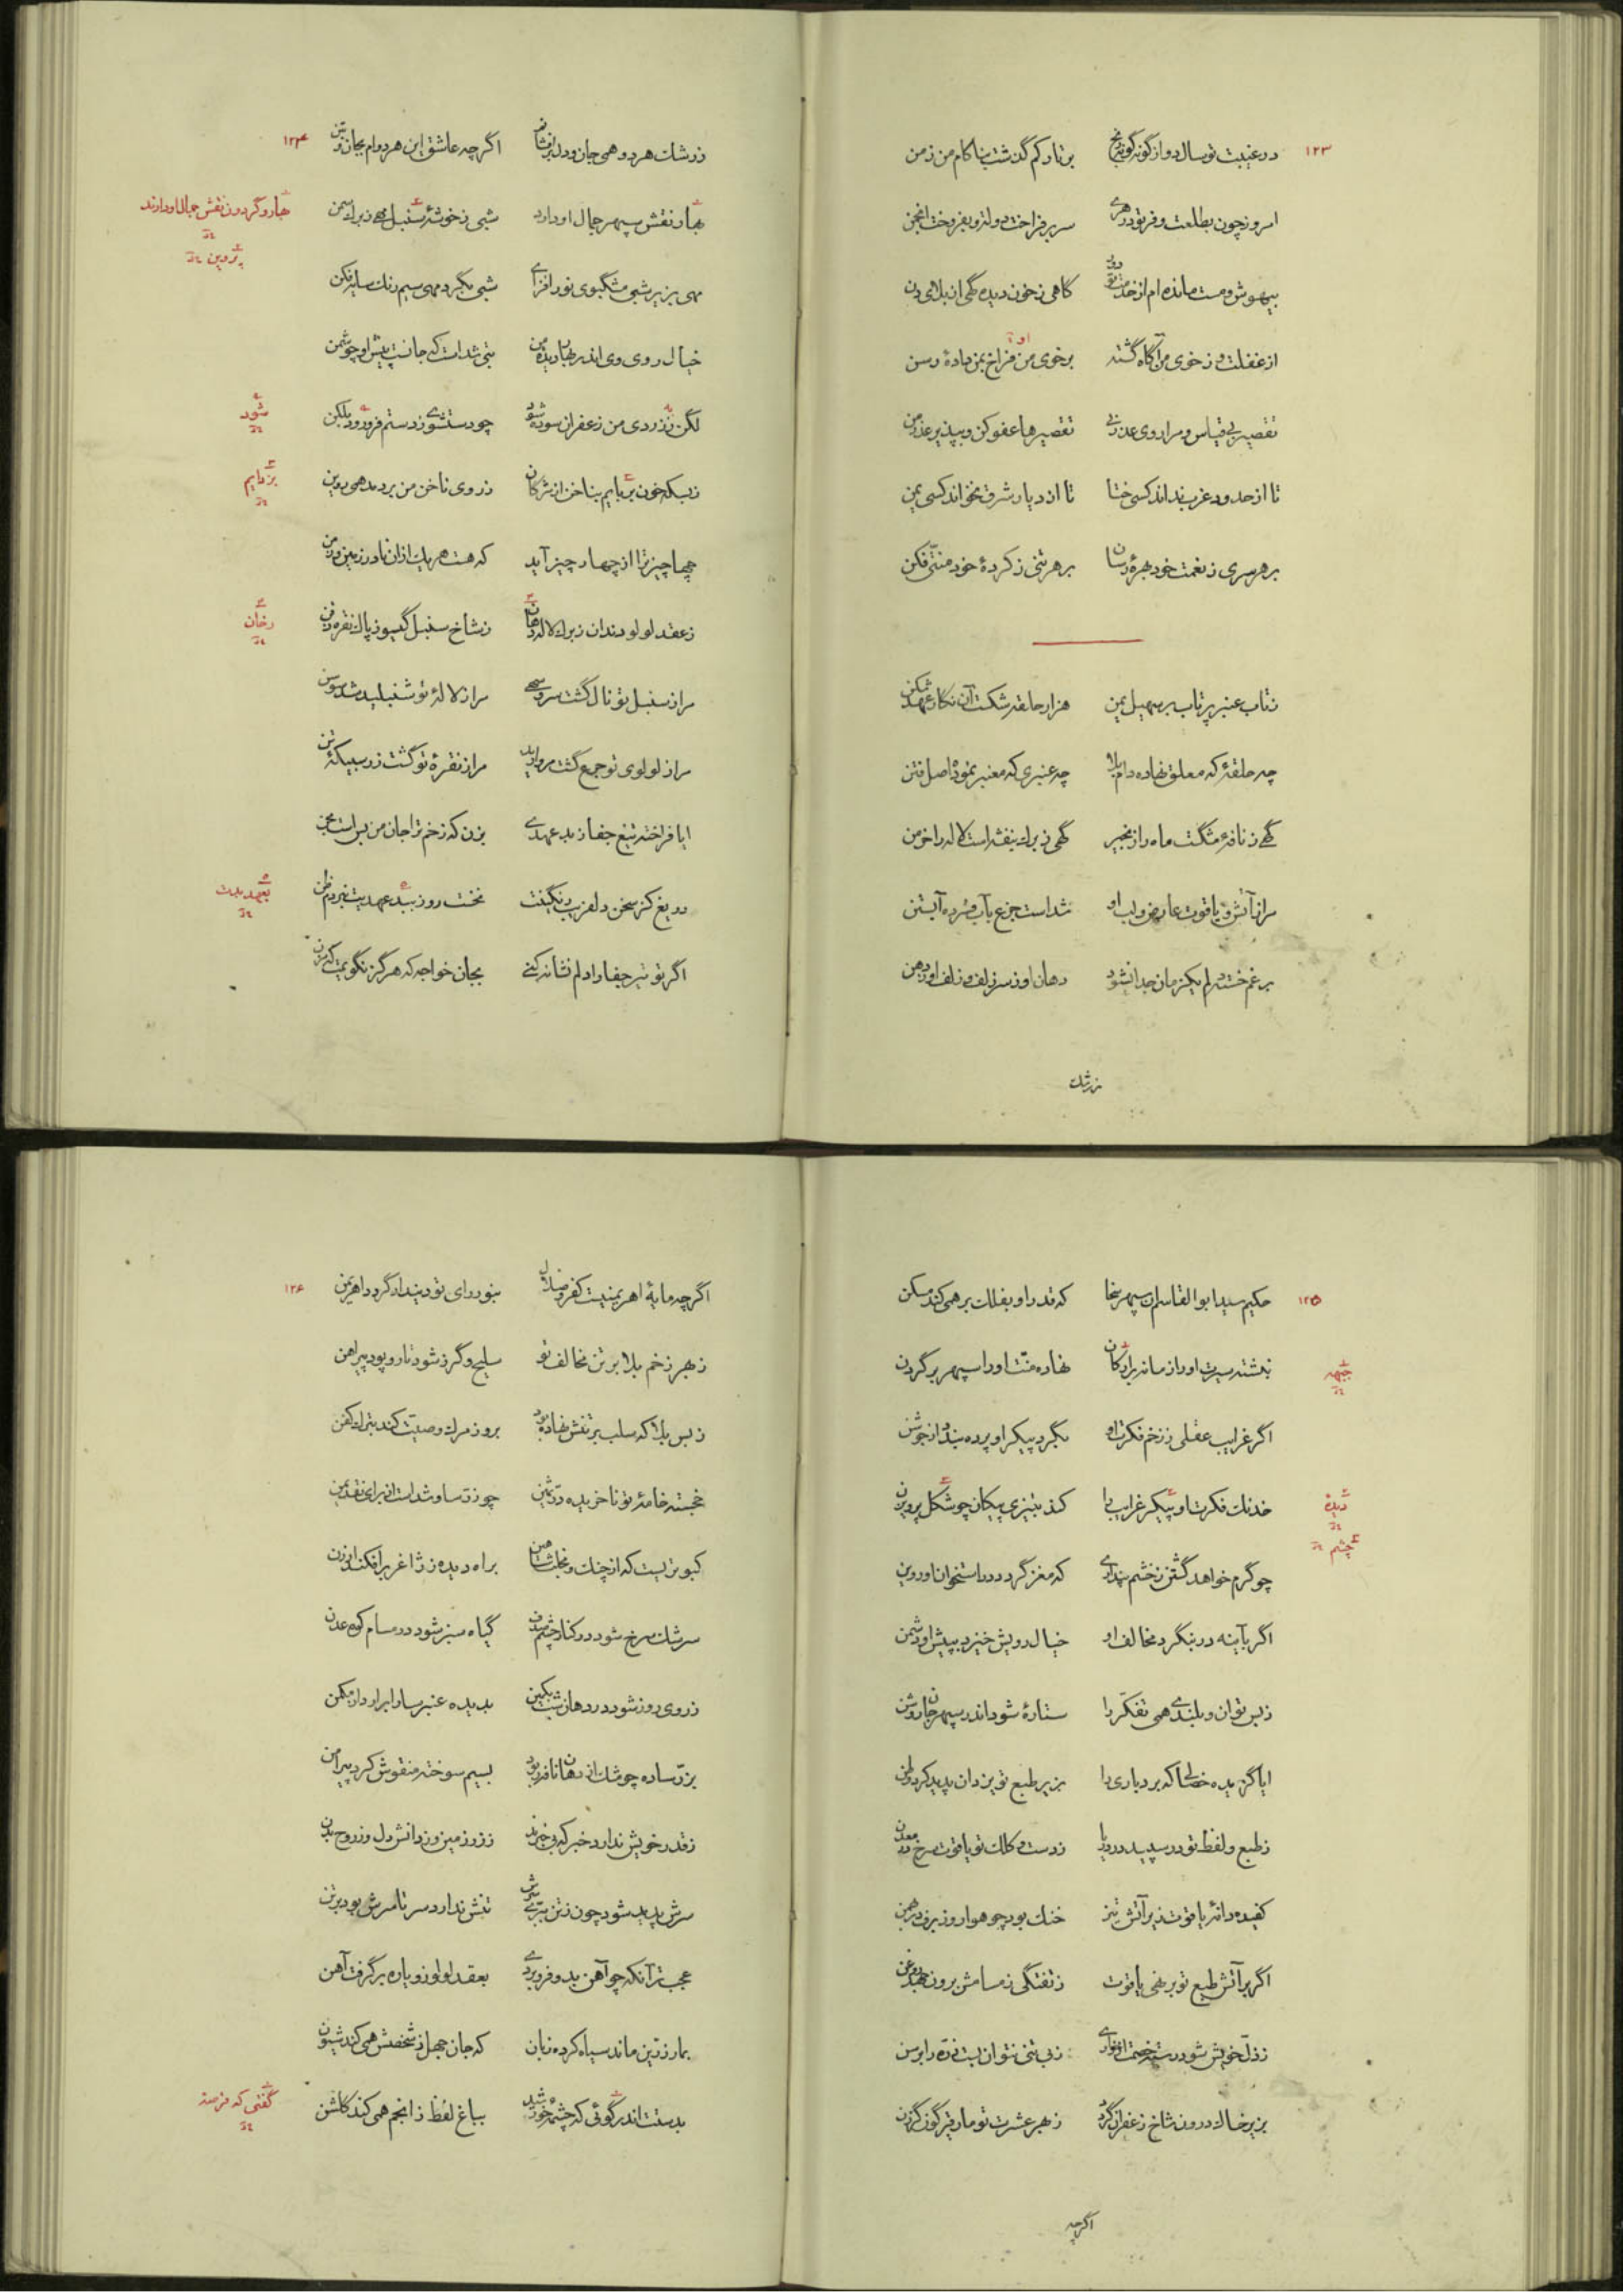 ۱۲۳
در غیبت تو سال دو از گونه گونه رنج بر تارکم گذشت بناکام من ز من
امروز چون بطلعت و فر تو در هری سر برفراخت دولت و بفروخت انجمن
بیهوش و مست مانده‌ام از خدمت تو دور گاهی ز خون دیده گهی از بلای دن
از غفلت و ز خوی من آگاه گشته بر خوی من فراخ بمن داده رسن
او
تقصیر بی قیاس و مرا روی عذر نی تقصیرها عفو کن و بپذیر عذر من
تا از حدود غرب نداند کسی ختا تا از دیار شرق نخواند کسی یمن
بر هر سری ز نعمت خود بهرهٔ رسان بر هر تنی ز کردهٔ خود منتی فکن
ز تاب عنبر پرتاب بر سهیل یمن هزار حلقه شکست آن نگار عهد شکن
چه حلقهٔ که معلق نهاده دام بلا چه عنبری که معنبر نموده اصل فتن
گهی ز نافهٔ مشگست ماه را زنجیر گهی ز برك بنفشه است لاله را خرمن
مرا ز آتش و یاقوت عارض و لب او شداست جزع بآب فسرده آبستن
بر غم خسته دلم یکزمان جدا نشود دهان او ز سر زلف و زلف او ز دهن
ز رشك
۱۲۴
ز رشك هر دو همی جان و دل برافشانم اگر چه عاشق این هر دوام بجان و بتن
بهار نقش سپهر جمال او دارد شبی ز خوشهٔ سنبل مهی ز برك سمن
بهار و گردون نقش جمال او دارند
پروین
مهی بزیر شبی مشگبوی نور افزای شبی بگرد مهی سیم رنك سایه فکن
خیال روی وی اندر نهاد دیدهٔ من بتی شداست که جانست پیش او چو شمن
لگن ز زردی من زعفران سوده شود چو دست شوی ز دستم فرو رود بلگن
شود
ز بسکه خون بربایم بناخن از مژگان ز روی ناخن من بر دمد همی روین
بزدایم
چهار چیز ترا از چهار چیز آید که هست هر یك ازان نادر زمین و زمن
ز عقد لولو دندان ز برك لاله دهان ز شاخ سنبل گیسو ز پاك نقره ذقن
رخان
مرا ز سنبل تو نال گشت سرو سهی مرا ز لالهٔ تو شنبلید شد سوسن
مرا ز لولوی تو جمع گشت مروارید مرا ز نقرهٔ تو گشت زر سبیکهٔ تن
ایا فراخته تیغ جفا ز بد عهدی بزن که زخم ترا جان من بس است مجن
دریغ کز سخن دلفریب رنگینت نخست روز ببد عهدیت نبردم ظن
بعهد بدت
اگر تو تیر جفا را دلم نشانه کنی بجان خواجه که هرگز نگویمت که مزن
۱۲۵
حکیم سید ابوالقاسم آن سپهر سخا که قدر او بفلك بر همی کند مسکن
نبشته سیرت او را زمانه بر ارکان نهاده منت او را سپهر بر گردن
جبهه
اگر غرایب عقلی ز زخم فکرت او بگرد پیکر او پرده بندد از جوشن
خدنك فکرت او پیکر غرایب را کند بتیزی پیکان چو شکل پرویزن
دیده
چشم
چو گرم خواهد گشتن ز خشم پنداری که مغز گردد در استخوان او روین
اگر بآینه در بنگرد مخالف او خیال رویش خیزد بپیش او دشمن
ز بس توان و بلندی همی تفکر را ستارهٔ شود اندر سپهر جان روشن
ایا گزیده خصالی که بردباری را بزیر طبع تو یزدان پدید کرد وطن
ز طبع و لفظ تو در سپید در دریا ز دست و کلك تو یاقوت سرخ در معدن
کفیده دانهٔ یاقوت زیر آتش تیز خنك بود چو هوا روز برف در بهمن
اگر بر آتش طبع تو بر نهی یاقوت ز تفتگی ز مسامش برون جهد روغن
ز ذل خویش شود رسته خصمت افزاری ز بی تنی نتوان بست ذره را برسن
بزیر خاك درون شاخ زعفران گردد ز بهر عشرت تو مار قیرگون گرزن
اگر چه
۱۲۶
اگر چه مایهٔ اهریمنیست کفر و ضلال بنور رای تو دیندار گردد اهریمن
ز بهر زخم بلا بر تن مخالف تو سلیح و گرز شود تار و پود پیراهن
ز بس بلا که سلب بر تنش نهاده بود بروز مرك وصیت کند بترك کفن
خجسته خامهٔ تو ناخریده در ثمین چو زر ساو شداست از برای نقد ثمن
کبوتریست که از چنك و مخلب شاهین براه دیده ز زاغر برافکند ارزن
سرشك سرخ شود در کنار چشم صدف گیاه سبز شود در مسام کوه عدن
ز روی روز شود در دهان شب مسکین بدیده عنبر سارا برآرد از مکمن
بزر ساده چو مشك از دهان نافه ربود بسیم سوخته منقوش کرد پیرامن
ز قدر خویش ندارد خبر که بی‌خبرند ز زر زمین و ز دانش دل و ز روح بدن
سرش پدید شود چون ز تن ببری سرش تنش ندارد سر تا سرش بود بر تن
عجب‌تر آنکه چو آهن بدو فرو بردی بعقد لولو زو پاره بر گرفت آهن
بمار زرین ماند سیاه کرده زبان که جان جهل ز شخصش همی کند شیون
بدستت اندر گوئی که چشمهٔ خورشید بباغ لفظ ز انجم همی کند گلشن
گفتی که